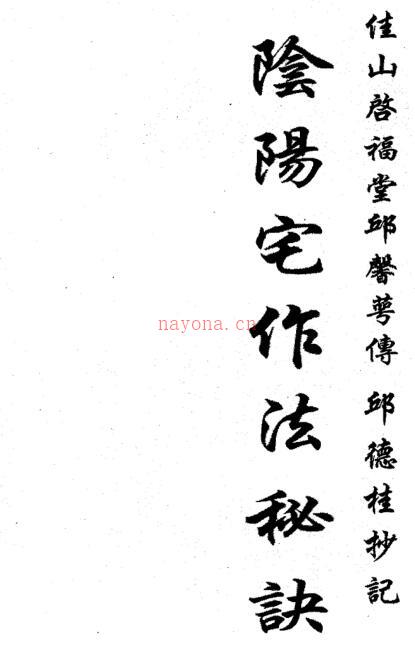 佳山啓福堂邱馨萼傳 邱德桂抄記
陰陽宅作法秘訣
nayona.cn